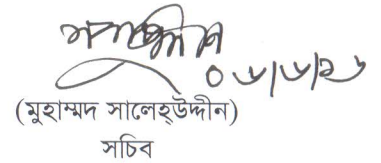 ০৬/৬/১৬
(মুহাম্মদ সালেহ্উদ্দীন)
সচিব